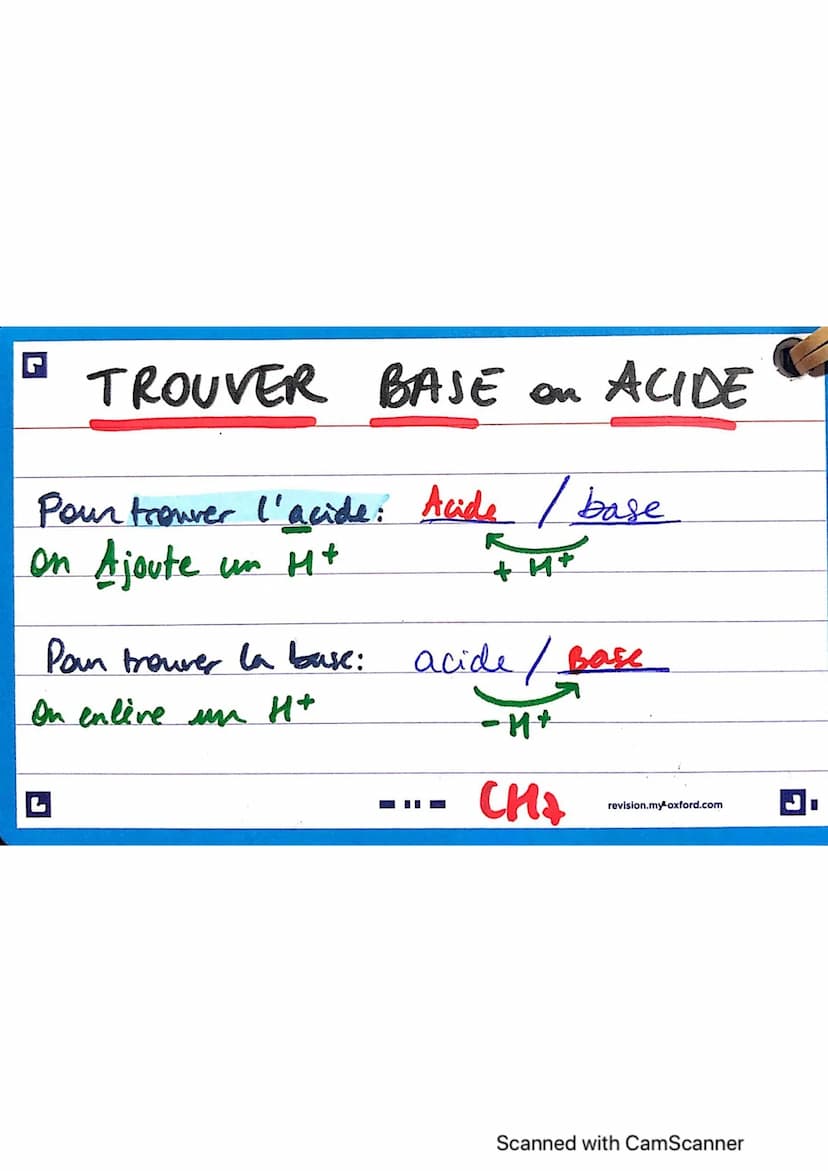 TROUVER BASE ou ACIDE
Pour trouver l'acide: Acide / base
on Ajoute un H+
+ H+
Pour trouver la base: acide / Base
On enlève un H+
- H+
CH7
revision.myoxford.com
Scanned with CamScanner